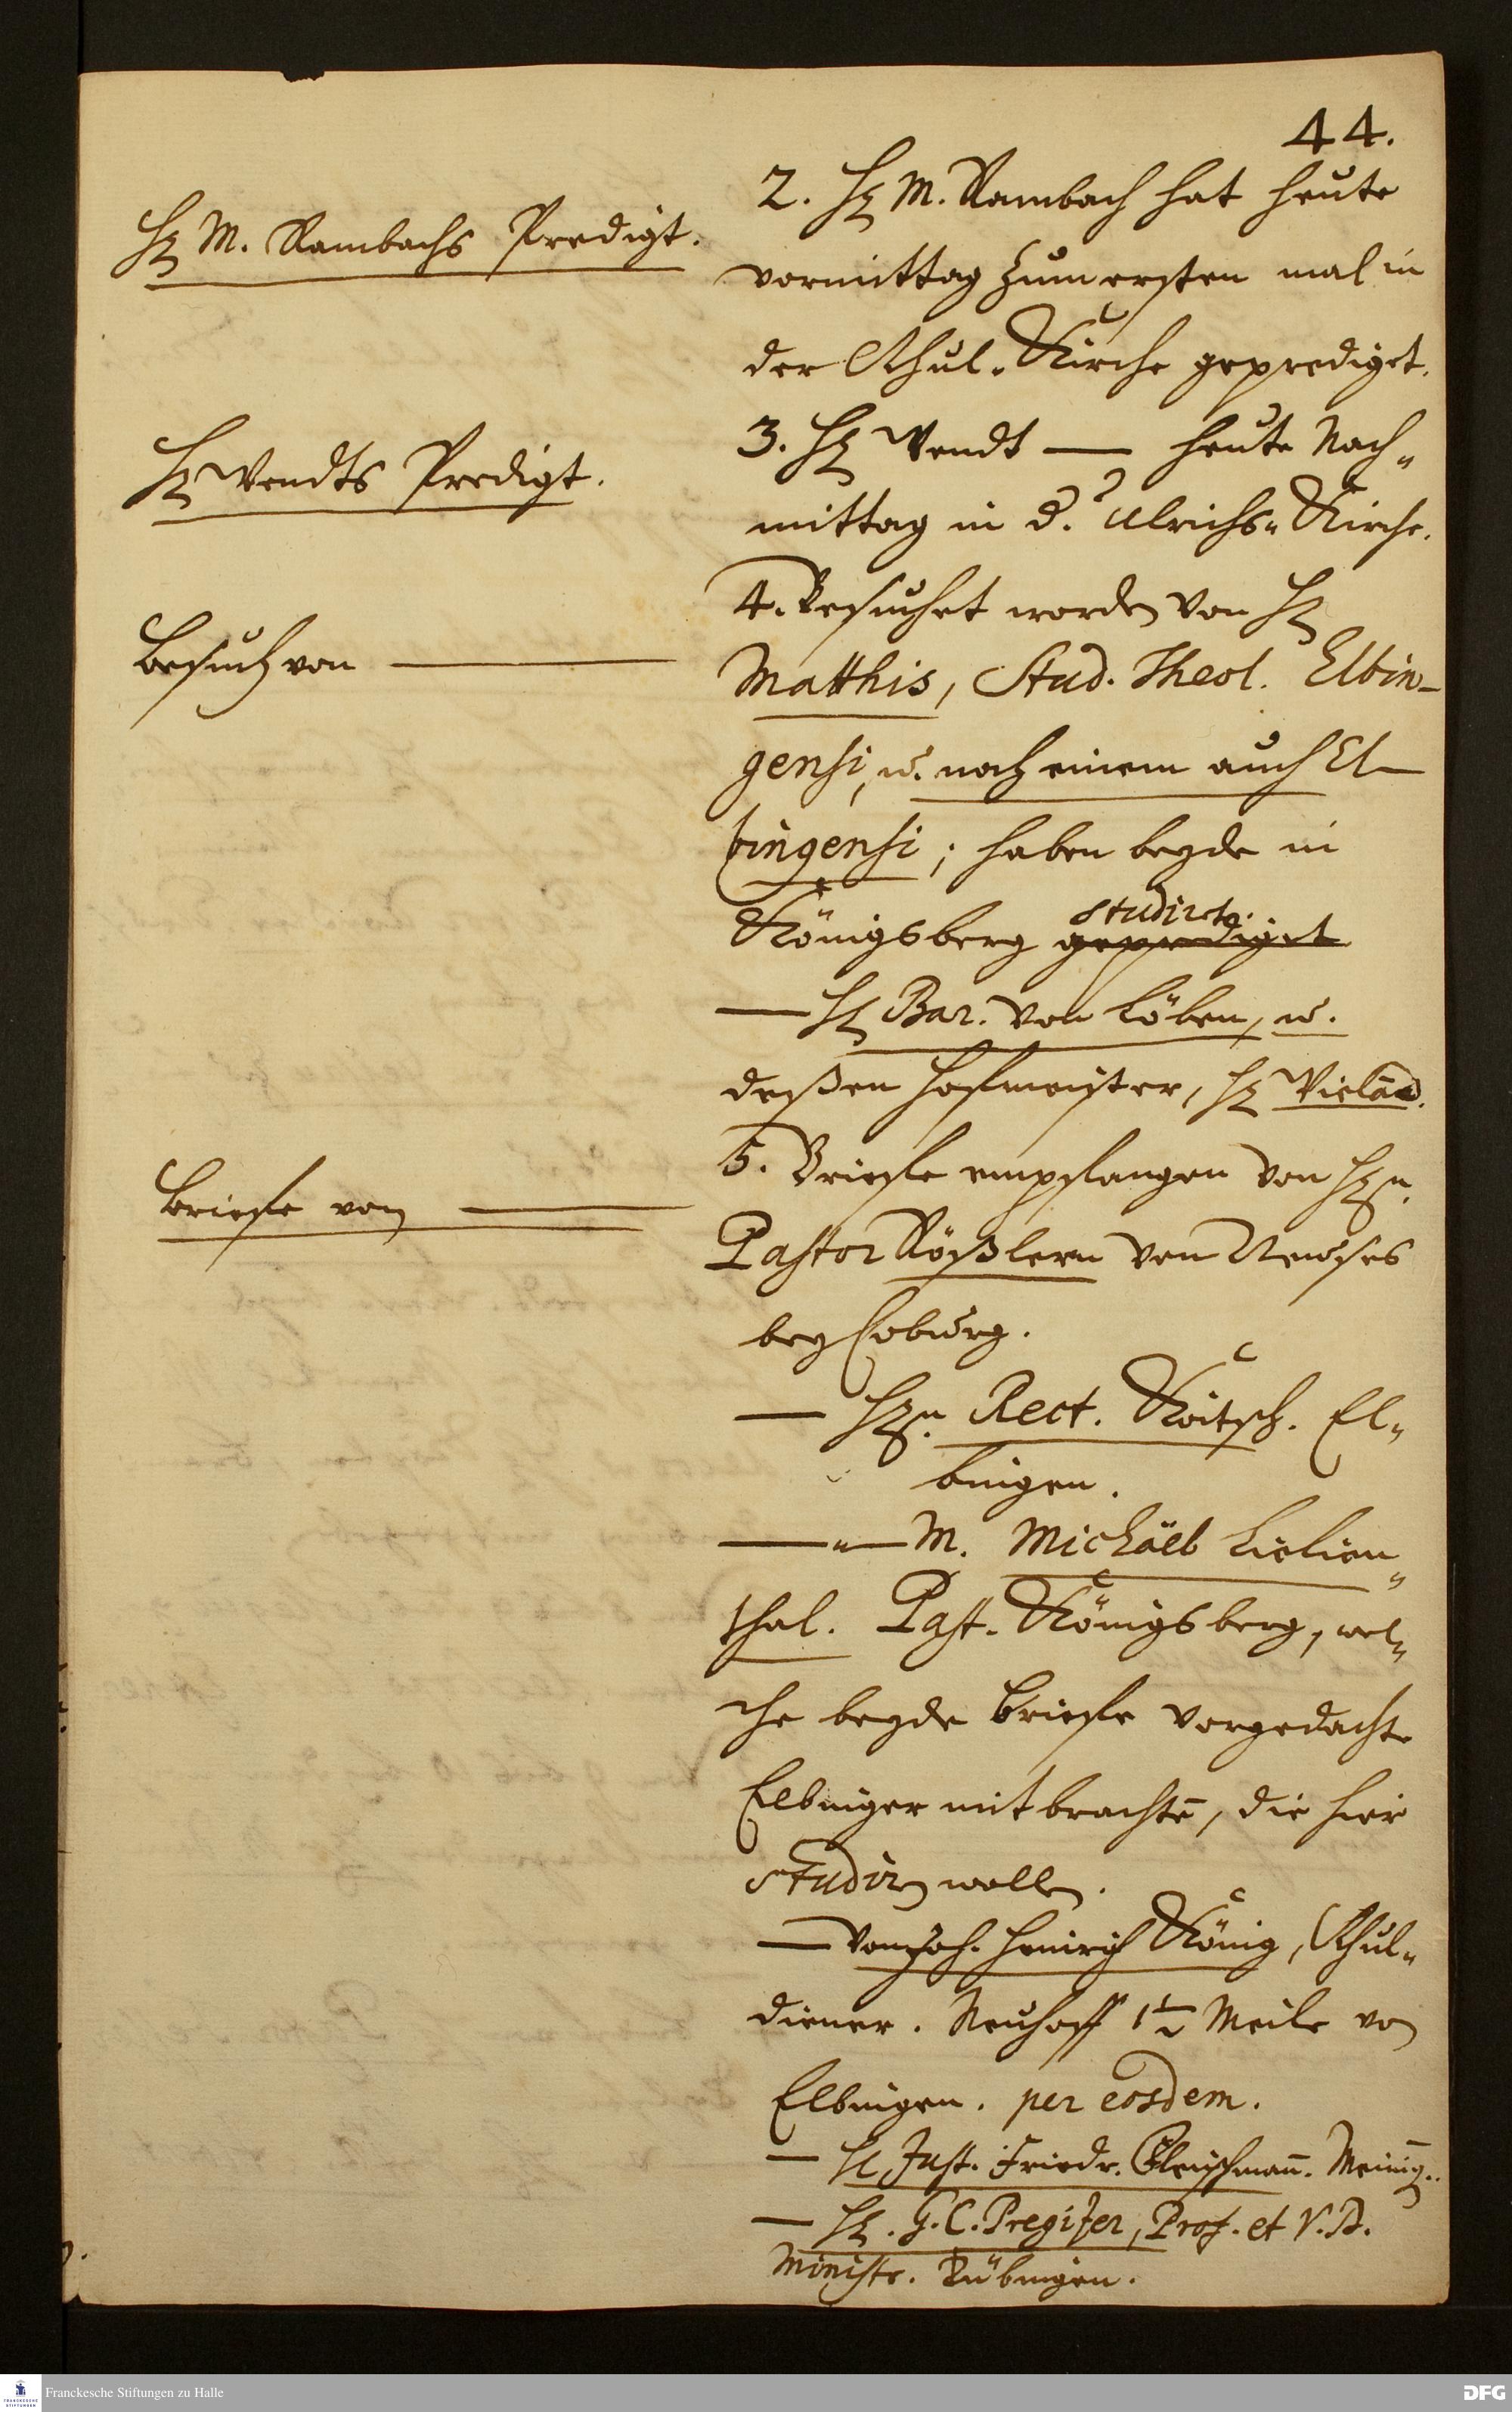 44.
2. Hr M. Rambach hat heute
Hr M. Rambachs Predigt.
vormittag zum ersten mal in
der Schul-Kirche geprediget.
3. Hr Wendt — heute Nach-
Hr Wendts Predigt.
mittag in d. Ulrichs-Kirche.
4. Besuchet worden von Hr
Besuch von —
Matthis, Stud. Theol. Elbin-
gensi, u. noch einem auch El-
bingensi; haben beyde in
studiret.
Königsberg geprediget
— Hr Bar. von Löben, u.
deßen Hofmeister, Hr
5. Briefe empfangen von Hrn.
Briefe von —
Pastor Rößlern von Neuses
bey Coburg.
— Hrn. Rect. Koitsch. El-
bingen.
— " — M. Michäel Lielien-
thal. Past. Königsberg, wel-
che beyde Briefe vorgedachte
Elbinger mitbrachte, die hier
studiren wollen.
— von Joh. Heinrich König, Schul-
diener. Neuhoff 1½ Meile von
Elbingen. per eosdem.
— Hr Just. Friedr. Fleischmann. Meining.
— Hr. G. C. Pregizer, Prof. et V. D.
Ministr. Tübingen.
Franckesche Stiftungen zu Halle
DFG